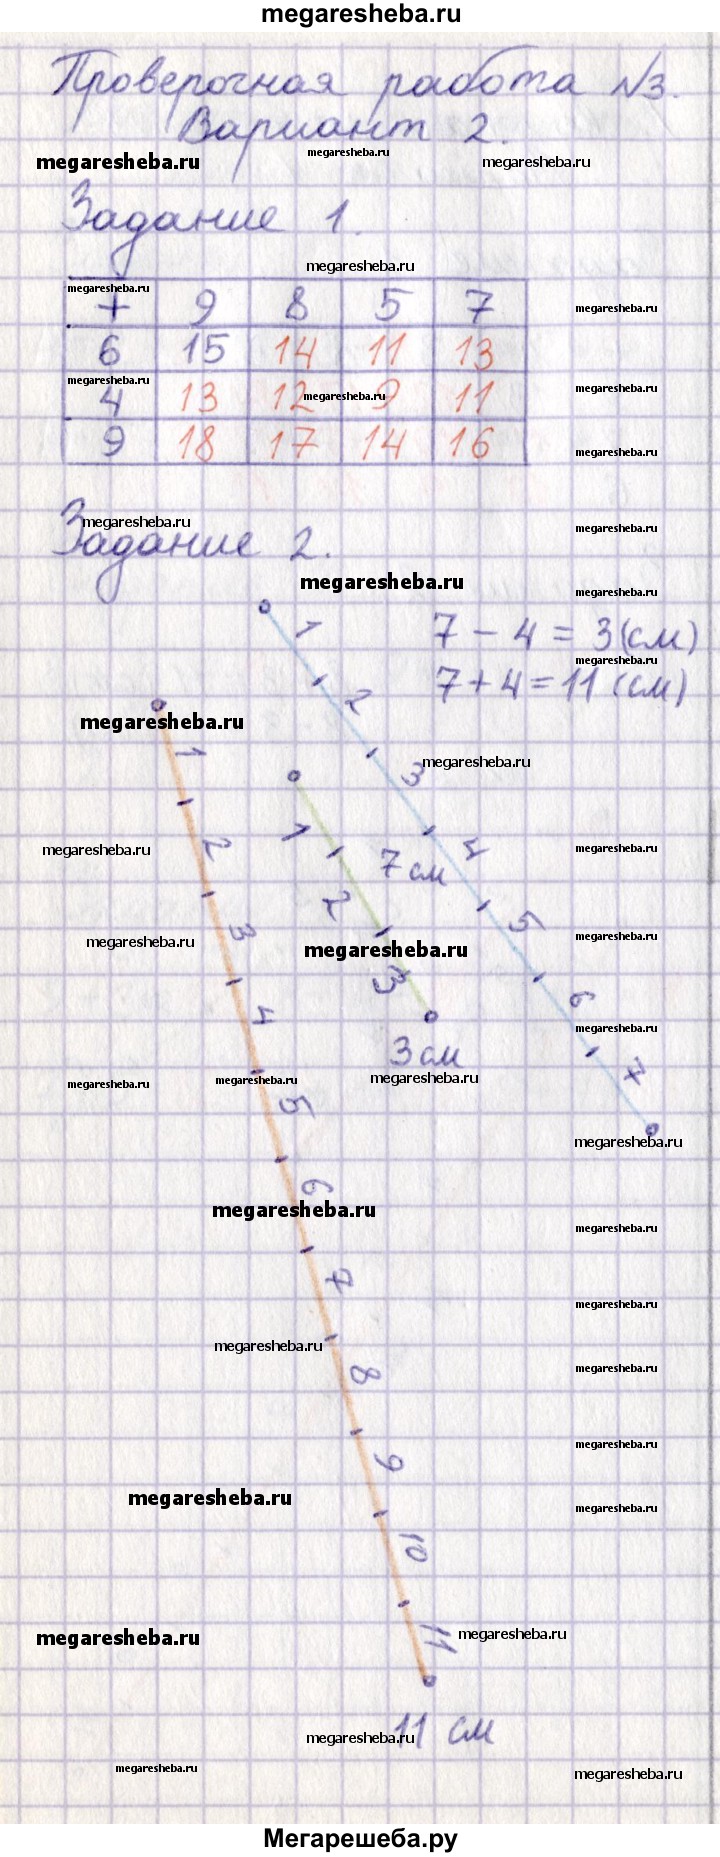 megaresheba.ru
Проверочная работа №3.
Вариант 2.
megaresheba.ru megaresheba.ru megaresheba.ru
Задание 1.
megaresheba.ru
megaresheba.ru
+ 9 8 5 7
megaresheba.ru
6 15 14 11 13
megaresheba.ru megaresheba.ru megaresheba.ru
4 13 12 9 11
9 18 17 14 16
megaresheba.ru
megaresheba.ru megaresheba.ru
Задание 2.
megaresheba.ru megaresheba.ru
7 - 4 = 3 (см)
megaresheba.ru
7 + 4 = 11 (см)
megaresheba.ru
megaresheba.ru
1 2 3 4 5 6 7
7 см
megaresheba.ru megaresheba.ru
megaresheba.ru megaresheba.ru megaresheba.ru
1 2 3
3 см
megaresheba.ru
megaresheba.ru megaresheba.ru megaresheba.ru
megaresheba.ru
1 2 3 4 5 6 7 8 9 10 11
megaresheba.ru megaresheba.ru
megaresheba.ru
megaresheba.ru megaresheba.ru
megaresheba.ru
megaresheba.ru megaresheba.ru
megaresheba.ru megaresheba.ru
11 см
megaresheba.ru
megaresheba.ru megaresheba.ru
Мегарешеба.ру